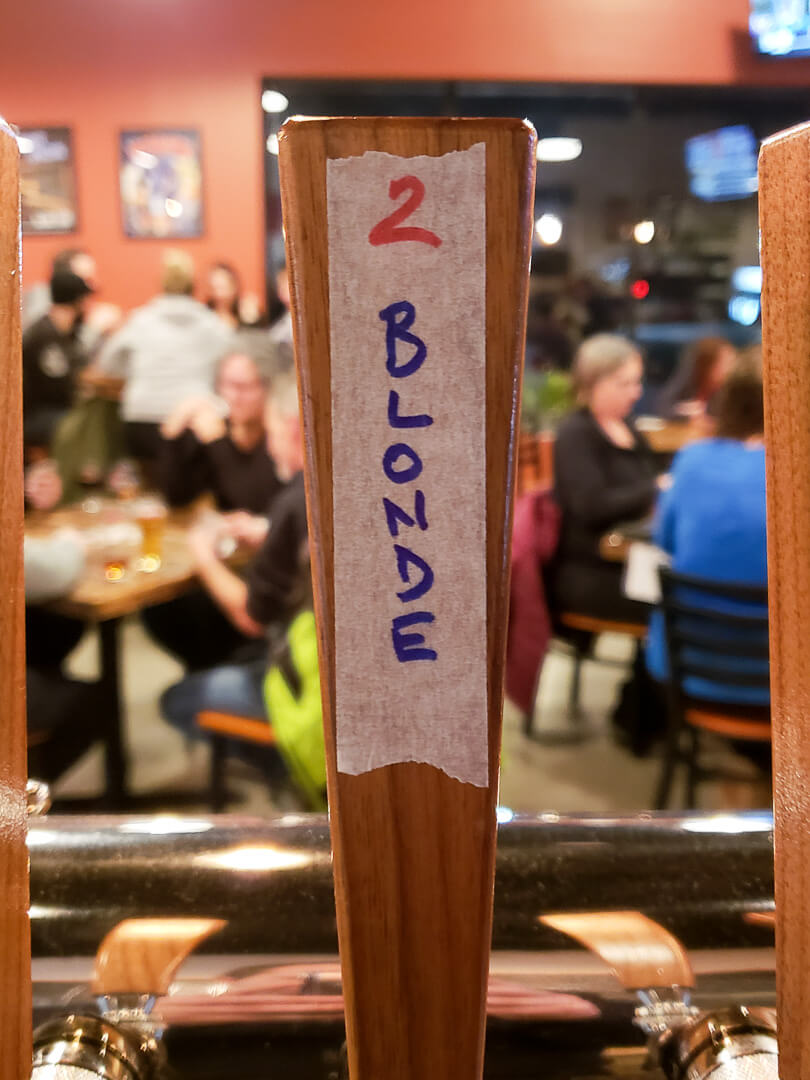 2
BLONDE